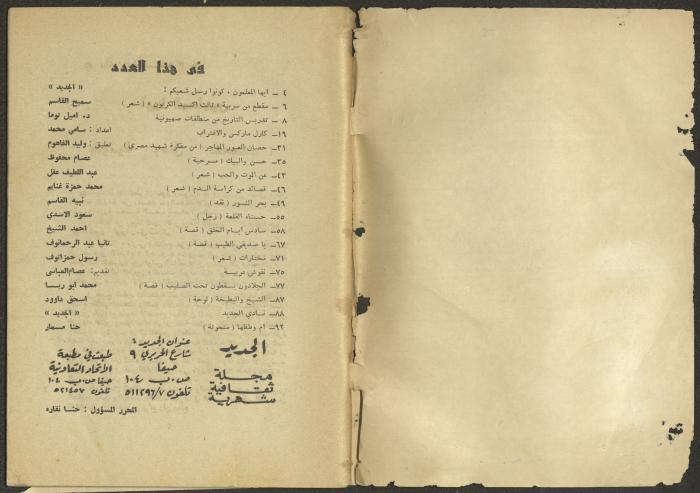 في هذا العدد
٤ ـ أيها المعلمون ، كونوا رسل شعبكم ! « الجديد »
٦ ـ مقطع من سربية « ثالث أكسيد الكربون » ( شعر ) سميح القاسم
٨ ـ تدريس التاريخ من منطلقات صهيونية د. اميل توما
١٩ـ كارل ماركس والاغتراب اعداد : سامي محمد
٣١ـ حصان العبور المهاجر ( من مفكرة شهيد مصري ) تعليق : وليد الفاهوم
٣٥ـ حسن والبيك ( مسرحية ) عصام محفوظ
٤٣ـ عن الموت والحب ( شعر ) عبد اللطيف عقل
٤٦ـ قصائد من كراسة الدم ( شعر ) محمد حمزة غنايم
٤٩ـ بحر النسور ( نقد ) نبيه القاسم
٥٥ـ حسناء القلعة ( زجل ) سعود الاسدي
٥٨ـ سادس أيام الخلق ( قصة ) احمد الشيخ
٦٧ـ يا صديقي الطيب ( قصة ) تانيا عبد الرحمانوف
٧١ـ مختارات ( شعر ) رسول حمزاتوف
٧٥ـ نقوش عربية تقديم: عصام العباسي
٧٧ـ الجلادون يسقطون تحت الصليب ( قصة ) محمد ابو ريا
٨٧ـ الشيخ والبطيخة ( لوحة ) اسحق داوود
٨٨ـ نادي الجديد « الجديد »
٩٢ـ أم وطفلها ( منحوتة ) حنا مسمار
الجديد
مجلة
ثقافية
شهرية
عنوان الجديد :
شارع الحريري ٩
حيفا
ص.ب ١٠٤
تلفون ٥١١٢٩٦/٧
طبعت في مطبعة
الاتحاد التعاونية
حيفا ص.ب ١٠٤
تلفون ٥٢١٤٥٧
المحرر المسؤول : حنا نقاره